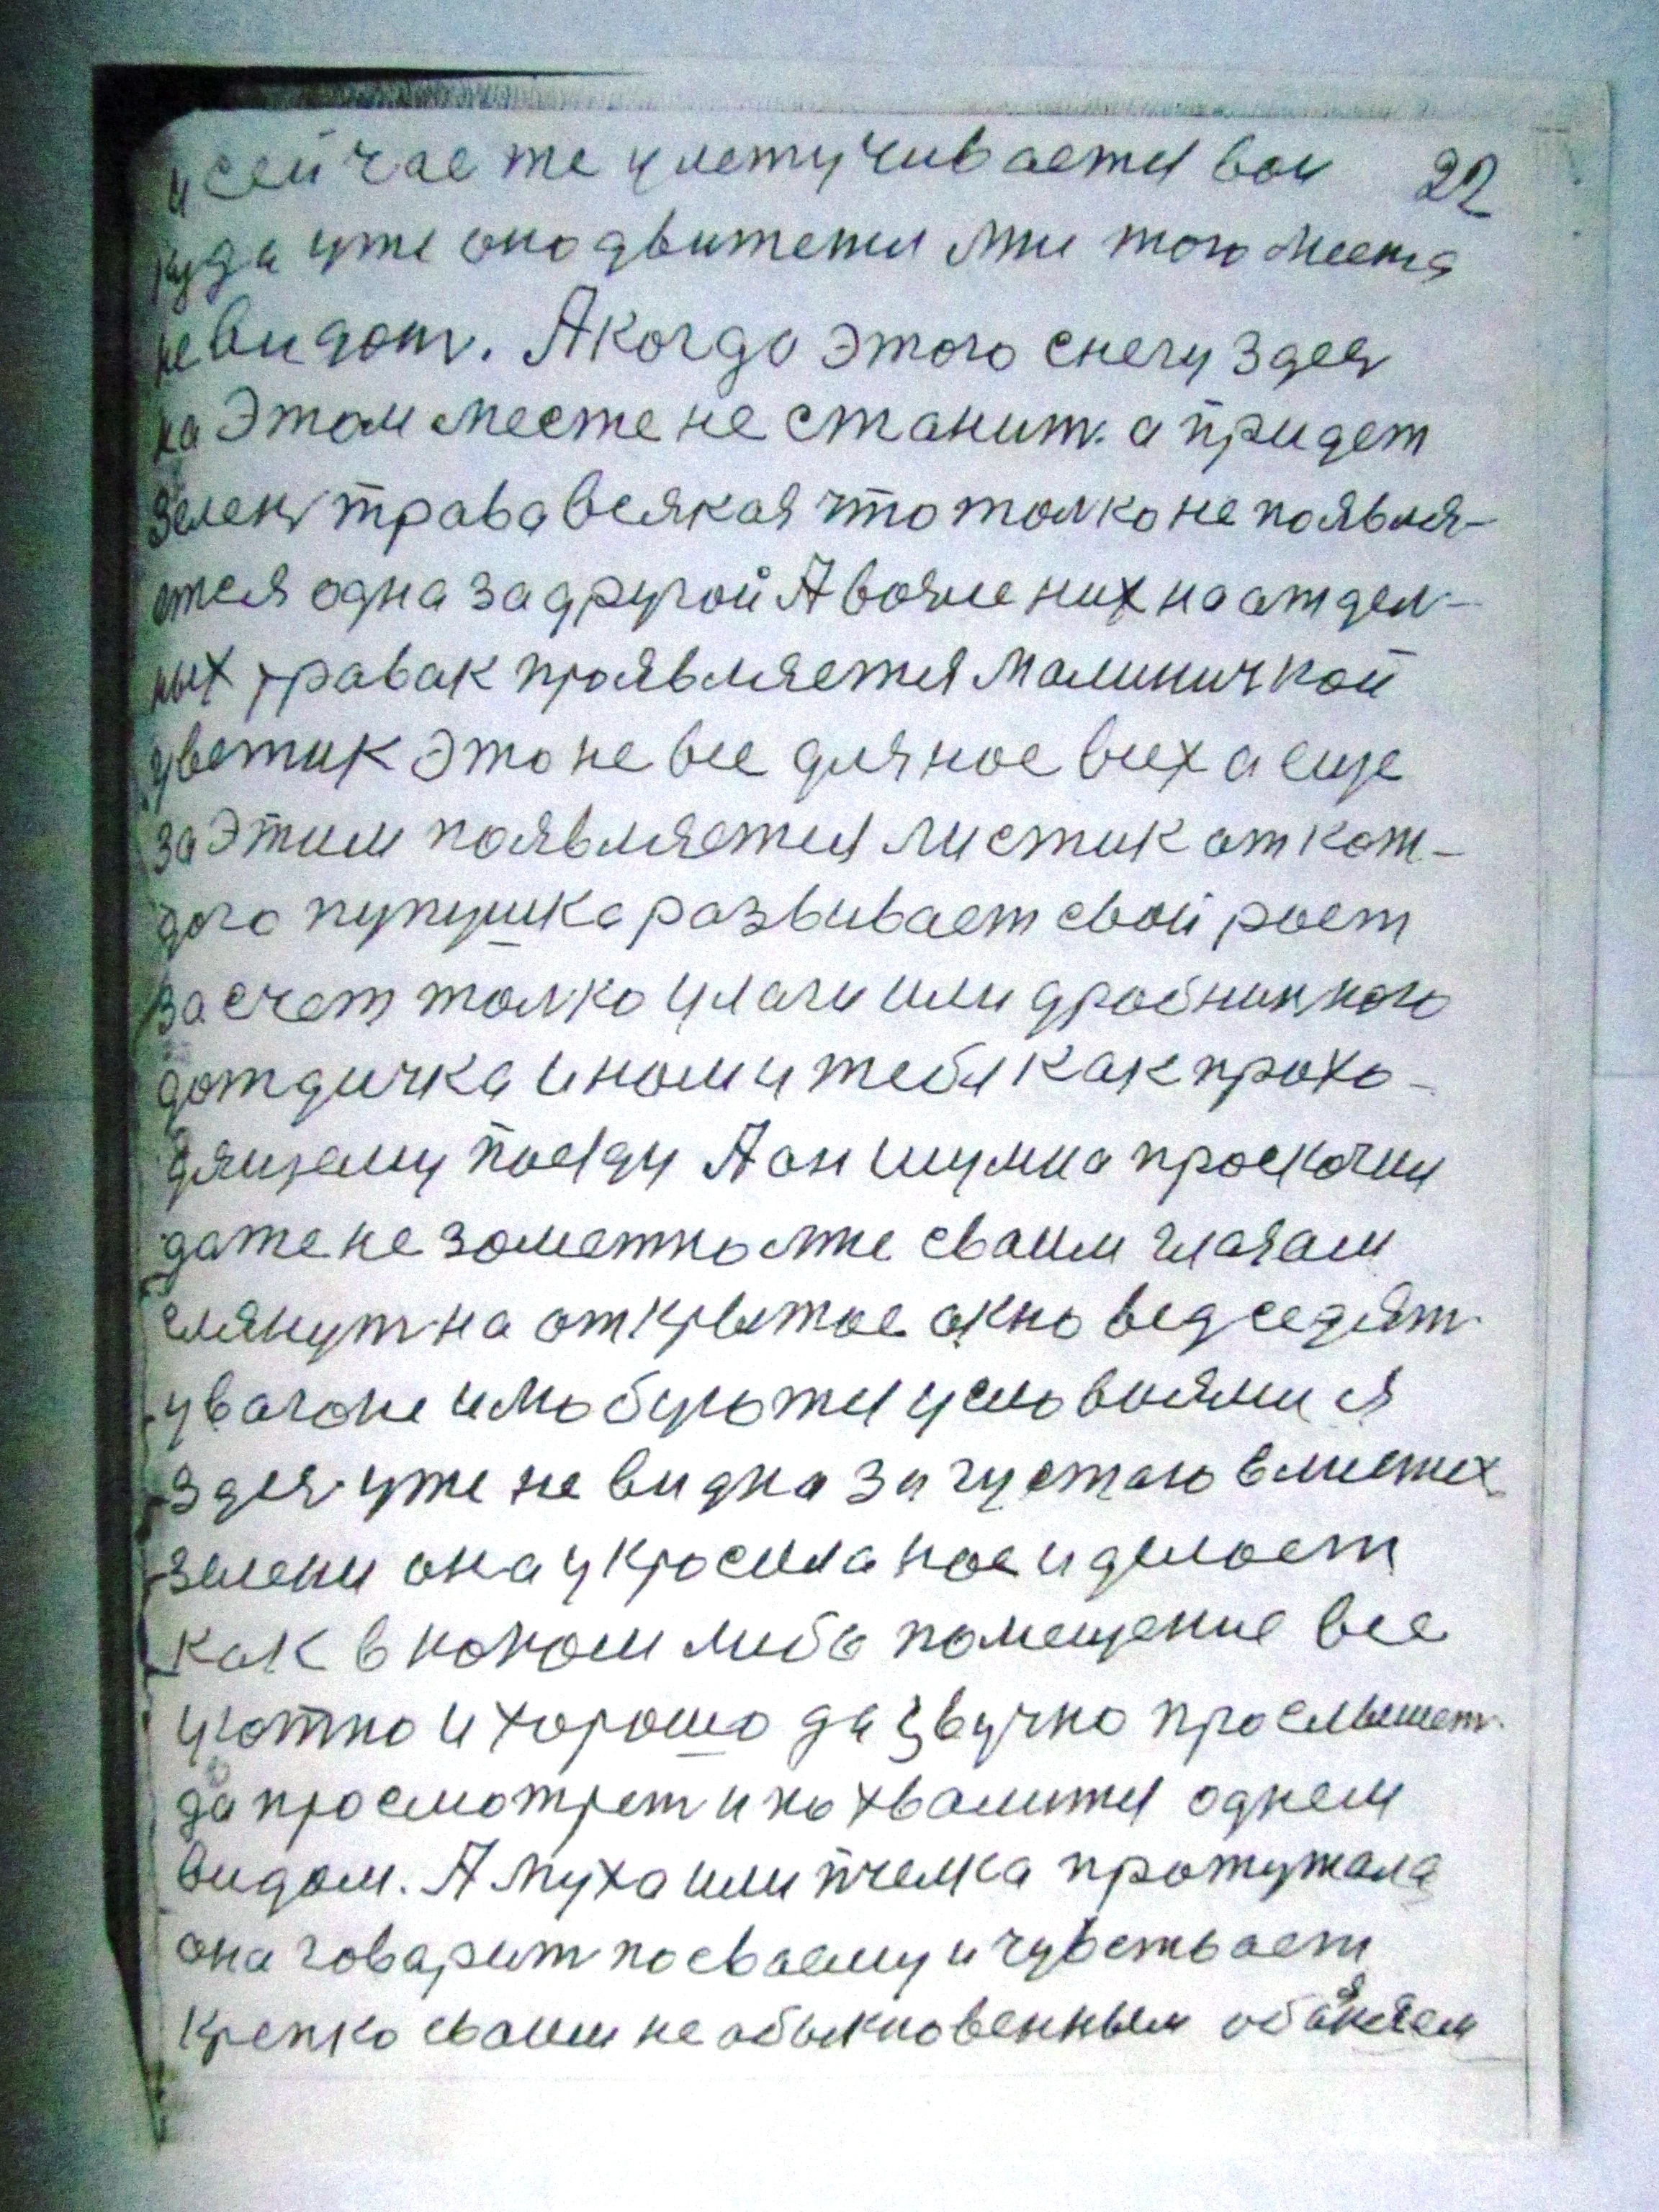 и сейчас же улетучивается вои 22
куда уже оно движется мне того места
не видот. А когдо этого снегу здесь
на этом месте не станит. а придет
зелень трава всякая что толко не появля-
ется одна за другой А возле них на отдель-
ных травак проявляется малиничкой
цветик это не все для нас всех а еще
за этим появляется листик от кож-
дого пупушка развивает свой рост
за счет толко улаги или дробнинкого
дождичка и ному тебя как прохо-
дящему поезду А он шумна проскочил
даже не зометно мне своим глазам
глянуть на открытое окно ведь седять
у вагоне и мо буются условиями я
здесь уже не видна за густаю в листех
зелени она украсила нас и делоет
как в коком либо помещение все
уютно и хорошо да звучно прослышеть
да просмотреть и похвалится однем
видом. А муха или пчелка прожужала
она говарить по сваему и чувствает
крепко сваим не обыкновенным обаянием